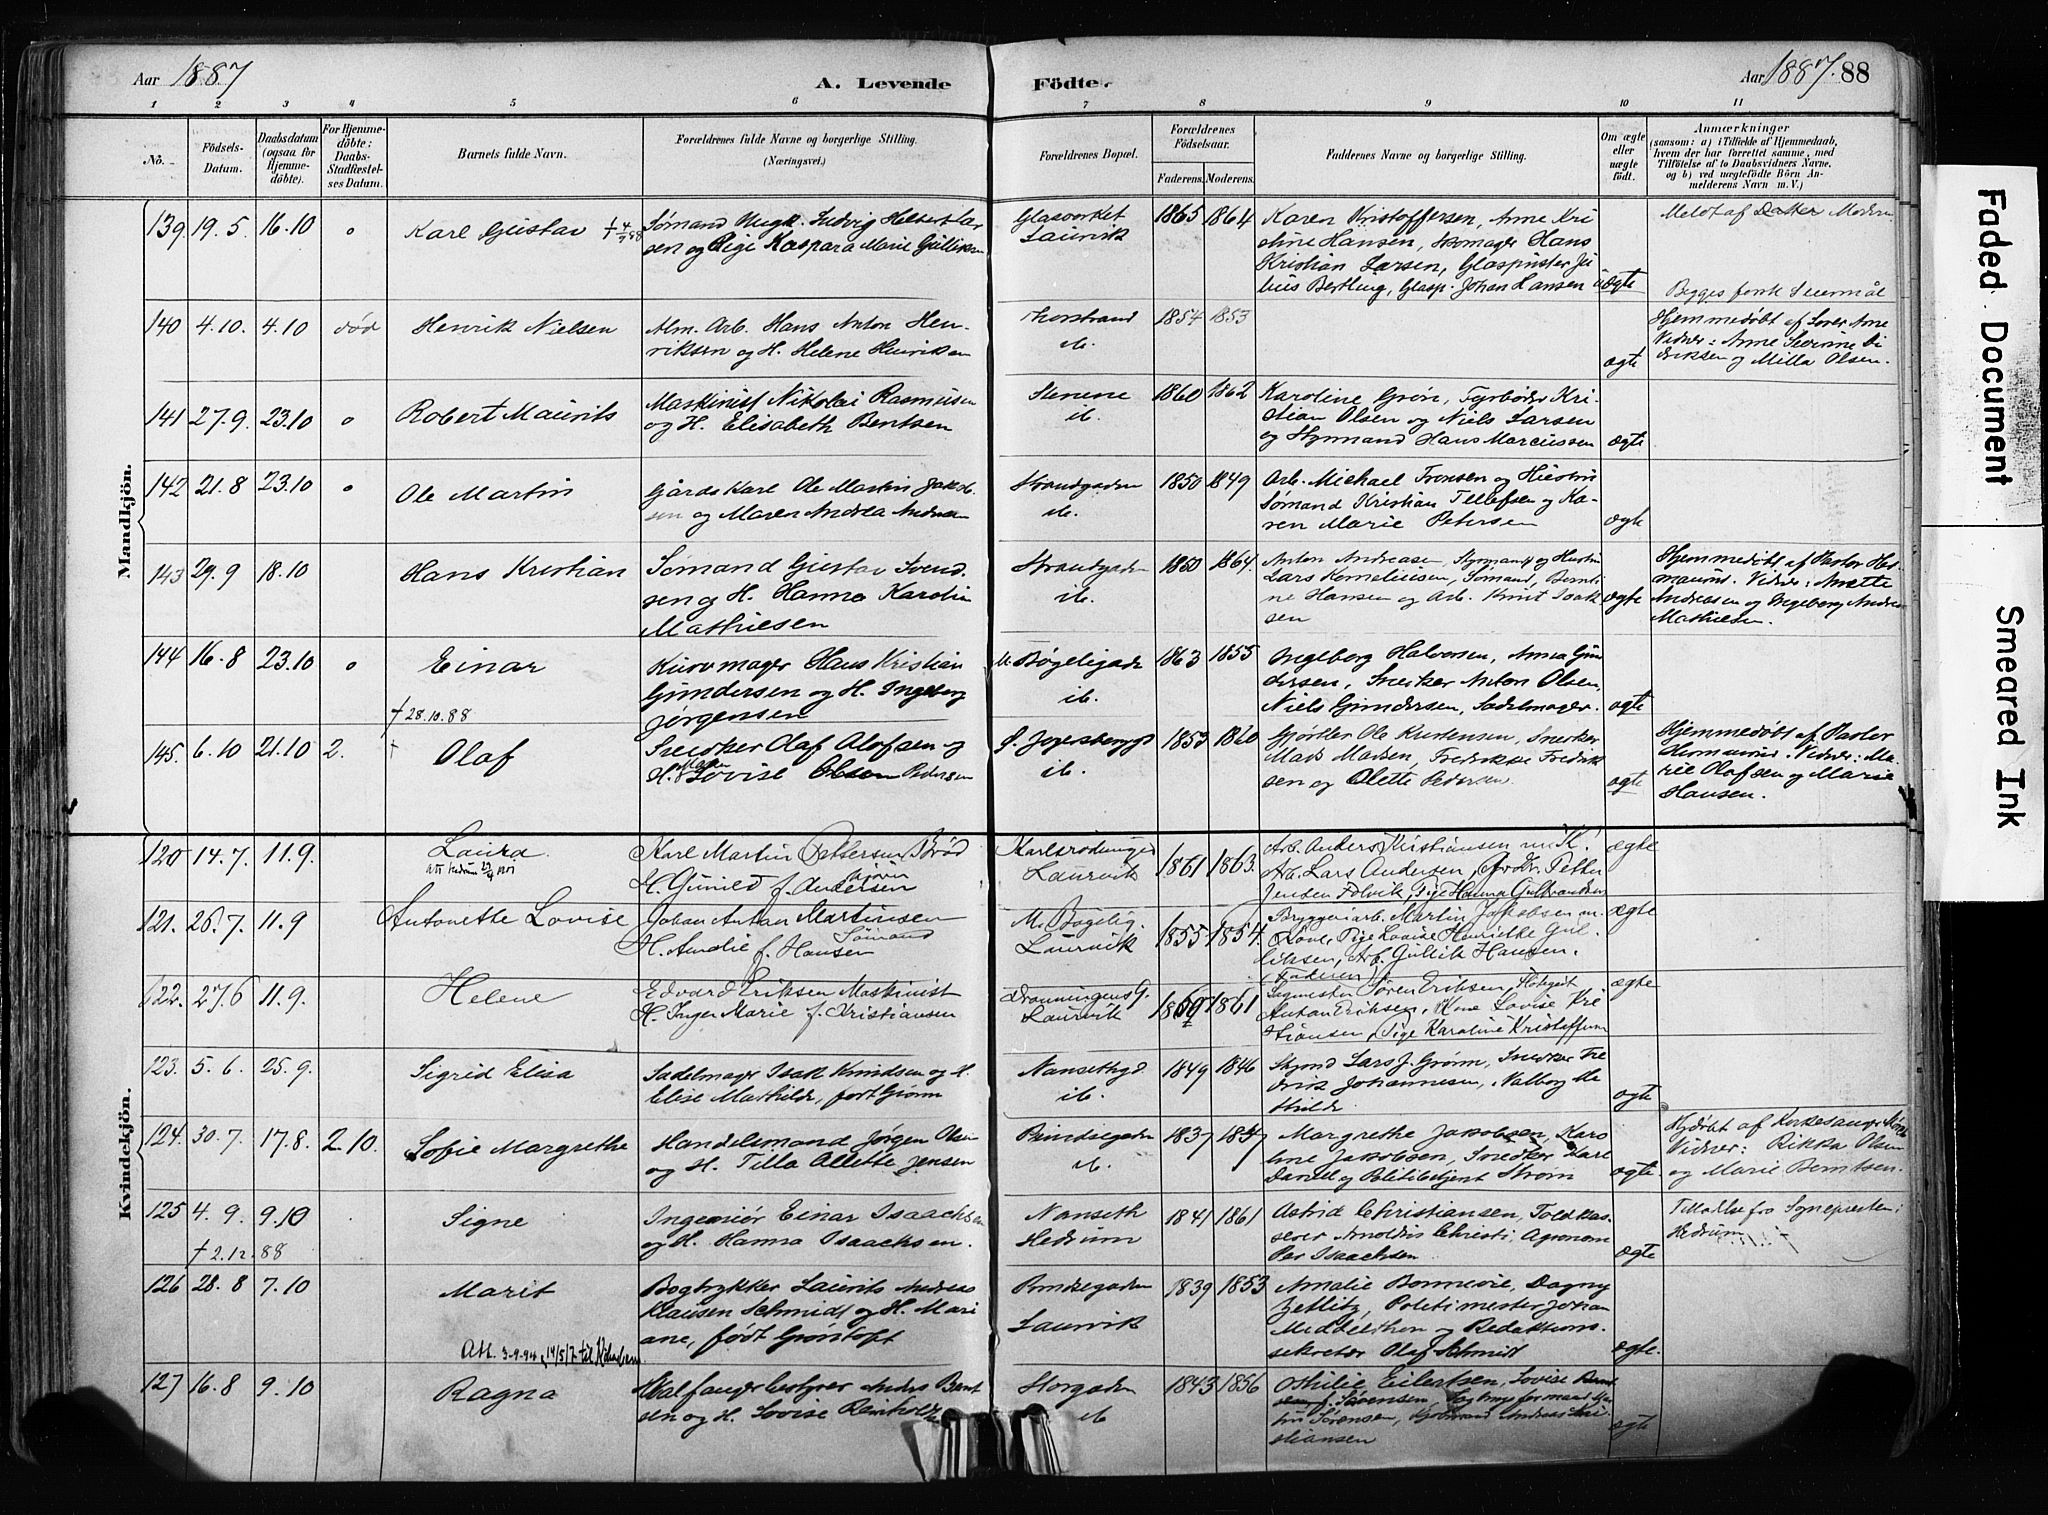 Aar 1887
A. Levende
Födte.
Aar 1887. 88
1 2 3 4 5 6 7 8 9 10 11
No.
Födsels-
Datum.
Daabsdatum
(ogsaa for
Hjemme-
döbte).
For Hjemme-
döbte:
Daabs-
Stadfæstel-
ses Datum.
Barnets fulde Navn.
Forældrenes fulde Navne og borgerlige Stilling.
(Næringsvei.)
Forældrenes Bopæl.
Forældrenes
Födselsaar.
Faderens. Moderens.
Faddernes Navne og borgerlige Stilling.
Om ægte
eller
uægte
födt.
Anmærkninger
(saasom: a) i Tilfælde af Hjemmedaab,
hvem der har forrettet samme, med
Tilföielse af to Daabsvidners Navne,
og b) ved uægtefödte Börn An-
melderens Navn m. V.)
Mandkjön.
139. 19.5 16.10 0 Karl Gustav
Sømand Ludvig
sen og Pige Kaspara Marie
Glasværket
Laurvik
1865 1864
Karen Kristoffersen, Anne Kri
stine Hansen, Skomager Hans
Kristian Larsen, Glaspuster Ju
lius Bertling, Glasp. Johan Hansen
uægte
Meldt af Moderen
Begges første Leiermål
140 4.10. 4.10 død Henrik Nielsen
Alm. Arb. Hans Anton Hen-
riksen og H. Helene Henriksen
Torstrand
ib.
1854 1853
ægte
Hjemmedøbt af
Vidner: Anne Severine Di
driksen og Milla Olsen.
141 27.9. 23.10 0 Robert Maurits
Maskinist Nikolai Rasmussen
og H. Elisabeth Bentsen
Stenene
ib.
1860 1862
Karoline Grøn, Fyrbøder Kri-
stian Olsen og Niels Larsen
og Styrmand Hans Marcussen
ægte
142 21.8 23.10 0 Ole Martin
Gårdskarl Ole Martin Jakob-
sen og Maren Andrea Andersen
Strandgaden
ib.
1850 1849
Arb. Michael Fronsen og Hustru
Sømand Kristian Tellefsen og Ka-
ren Marie Petersen
ægte
143 29.9 18.10 Hans Kristian
Sømand Gustav Svend-
sen og H. Hanna Karolin
Mathiesen
Strandgaden
ib.
1850 1864.
Anton Andreasen, Styrmand og Hustru
Lars Kornelius­sen, Sømand, Bernti
ne Hansen og Arb. Knut Isak
sen
ægte
Hjemmedøbt af Pastor Her
manrud. Vidner: Anette
Andreasen og Ingeborg Andrea
Mathiesen.
144 16.8 23.10 0 Einar
† 28.10.88
Kurvmager Hans Kristian
Gundersen og H. Ingeborg
Jørgensen
M. Bøgeligade
ib.
1863 1855
Ingeborg Halvorsen, Anna Gun
dersen, Snedker Anton Olsen,
Niels Gundersen, Sadelmager.
ægte
145. 6.10 21.10 2. † Olaf
Snedker Olaf Olofsen og
H. Maren Lovise Olsen Pedersen
ib.
1853 1860
Gjørtler Ole Kristensen, Snedker
Mads Madsen, Fredrikke Fredrik
sen og Olette Pedersen.
ægte
Hjemmedøbt af Pastor
Vidner: Ma
rie Olafsen og Marie
Hansen.
Kvindekjön.
120 14.7. 11.9. Laura
Karl Martin Pettersen Brød
H. Gunild f. Andersen
Laurvik
1861 1863.
Arb. Anders Kristiansen m. K.
Arb. Lars Andersen, Petter
Jensen Folvik, Pige Hanna Gulbrandsen
ægte
121. 26.7. 11.9 Antonette Lovise
Johan Anton Martinsen
Sømand
H. Amalie f. Hansen
M. Bøgelig.
Laurvik
1855 1854.
Bryggeriarb. Martin Jakobsen m.
Kone, Pige Lovise Henrikke Gul-
liksen, Arb. Gullik Hansen.
(Faderen)
ægte
122. 27.6 11.9. Helene
Edvard Eriksen Maskinist
H. Inger Marie f. Kristiansen
Dronningens G.
Laurvik
1860 1861
Sagmester Søren Eriksen,
Anton Eriksen, Kone Lovise Kri
stiansen, Pige Karoline Kristoffersen
ægte
123. 5.6. 25.9. Sigrid Elisa
Sadelmager Isak Knudsen og H.
Elise Mathilde, født Grønn
Nansethgd.
ib.
1849 1846
Skymd Lars J. Grønn, Snedker Fre
drik Johannesen, Valborg Ma
thilde
ægte
124. 30.7. 17.8. 2.10. Sofie Margrethe
Handelsmand Jørgen Olsen
og H. Tilla Allette Jensen
Brindsegaden
ib.
1837 1847
Margrethe Jakobsen, Karo
line Jakobsen, Snedker Karl
Dardell og Politibetjent Strøm
ægte.
Hjdøbt af Kirkesanger
Vidner: Rikka Olsen
og Marie Berntsen.
125 4.9. 9.10 Signe
† 2.12.88
Ingeniør Einar Isaachsen
og H. Hanna Isaachsen.
Nanseth
Hedrum
1841 1861
Astrid Christiansen, Toldkas-
serer Arnoldus Christi, Agronom
Per Isaachsen
ægte
Tilladelse fra Sognepresten i
Hedrum
126 28.8 7.10 Marit
Bogtrykker Laurits Andreas
Klausen Schmidt og H. Mari
ane, født Grønstoft
Att. 3-9-94
Brindsegaden
Laurvik
1839 1853
Amalie Bonnevie, Dagny
Zetlitz, Politimester Johan
Middelthon og Redaktions-
sekretær Olaf Schmidt
ægte.
127 16.8 9.10 Ragna
Hvalfangerbestyrer Anders Bent
sen og H. Lovise Reinholdt
Storgaden
ib
1843 1856
Othilie Eilertsen, Lovise
Sørensen,
Sørensen, Andreas Kri
stiansen
ægte
Faded Document
Smeared Ink